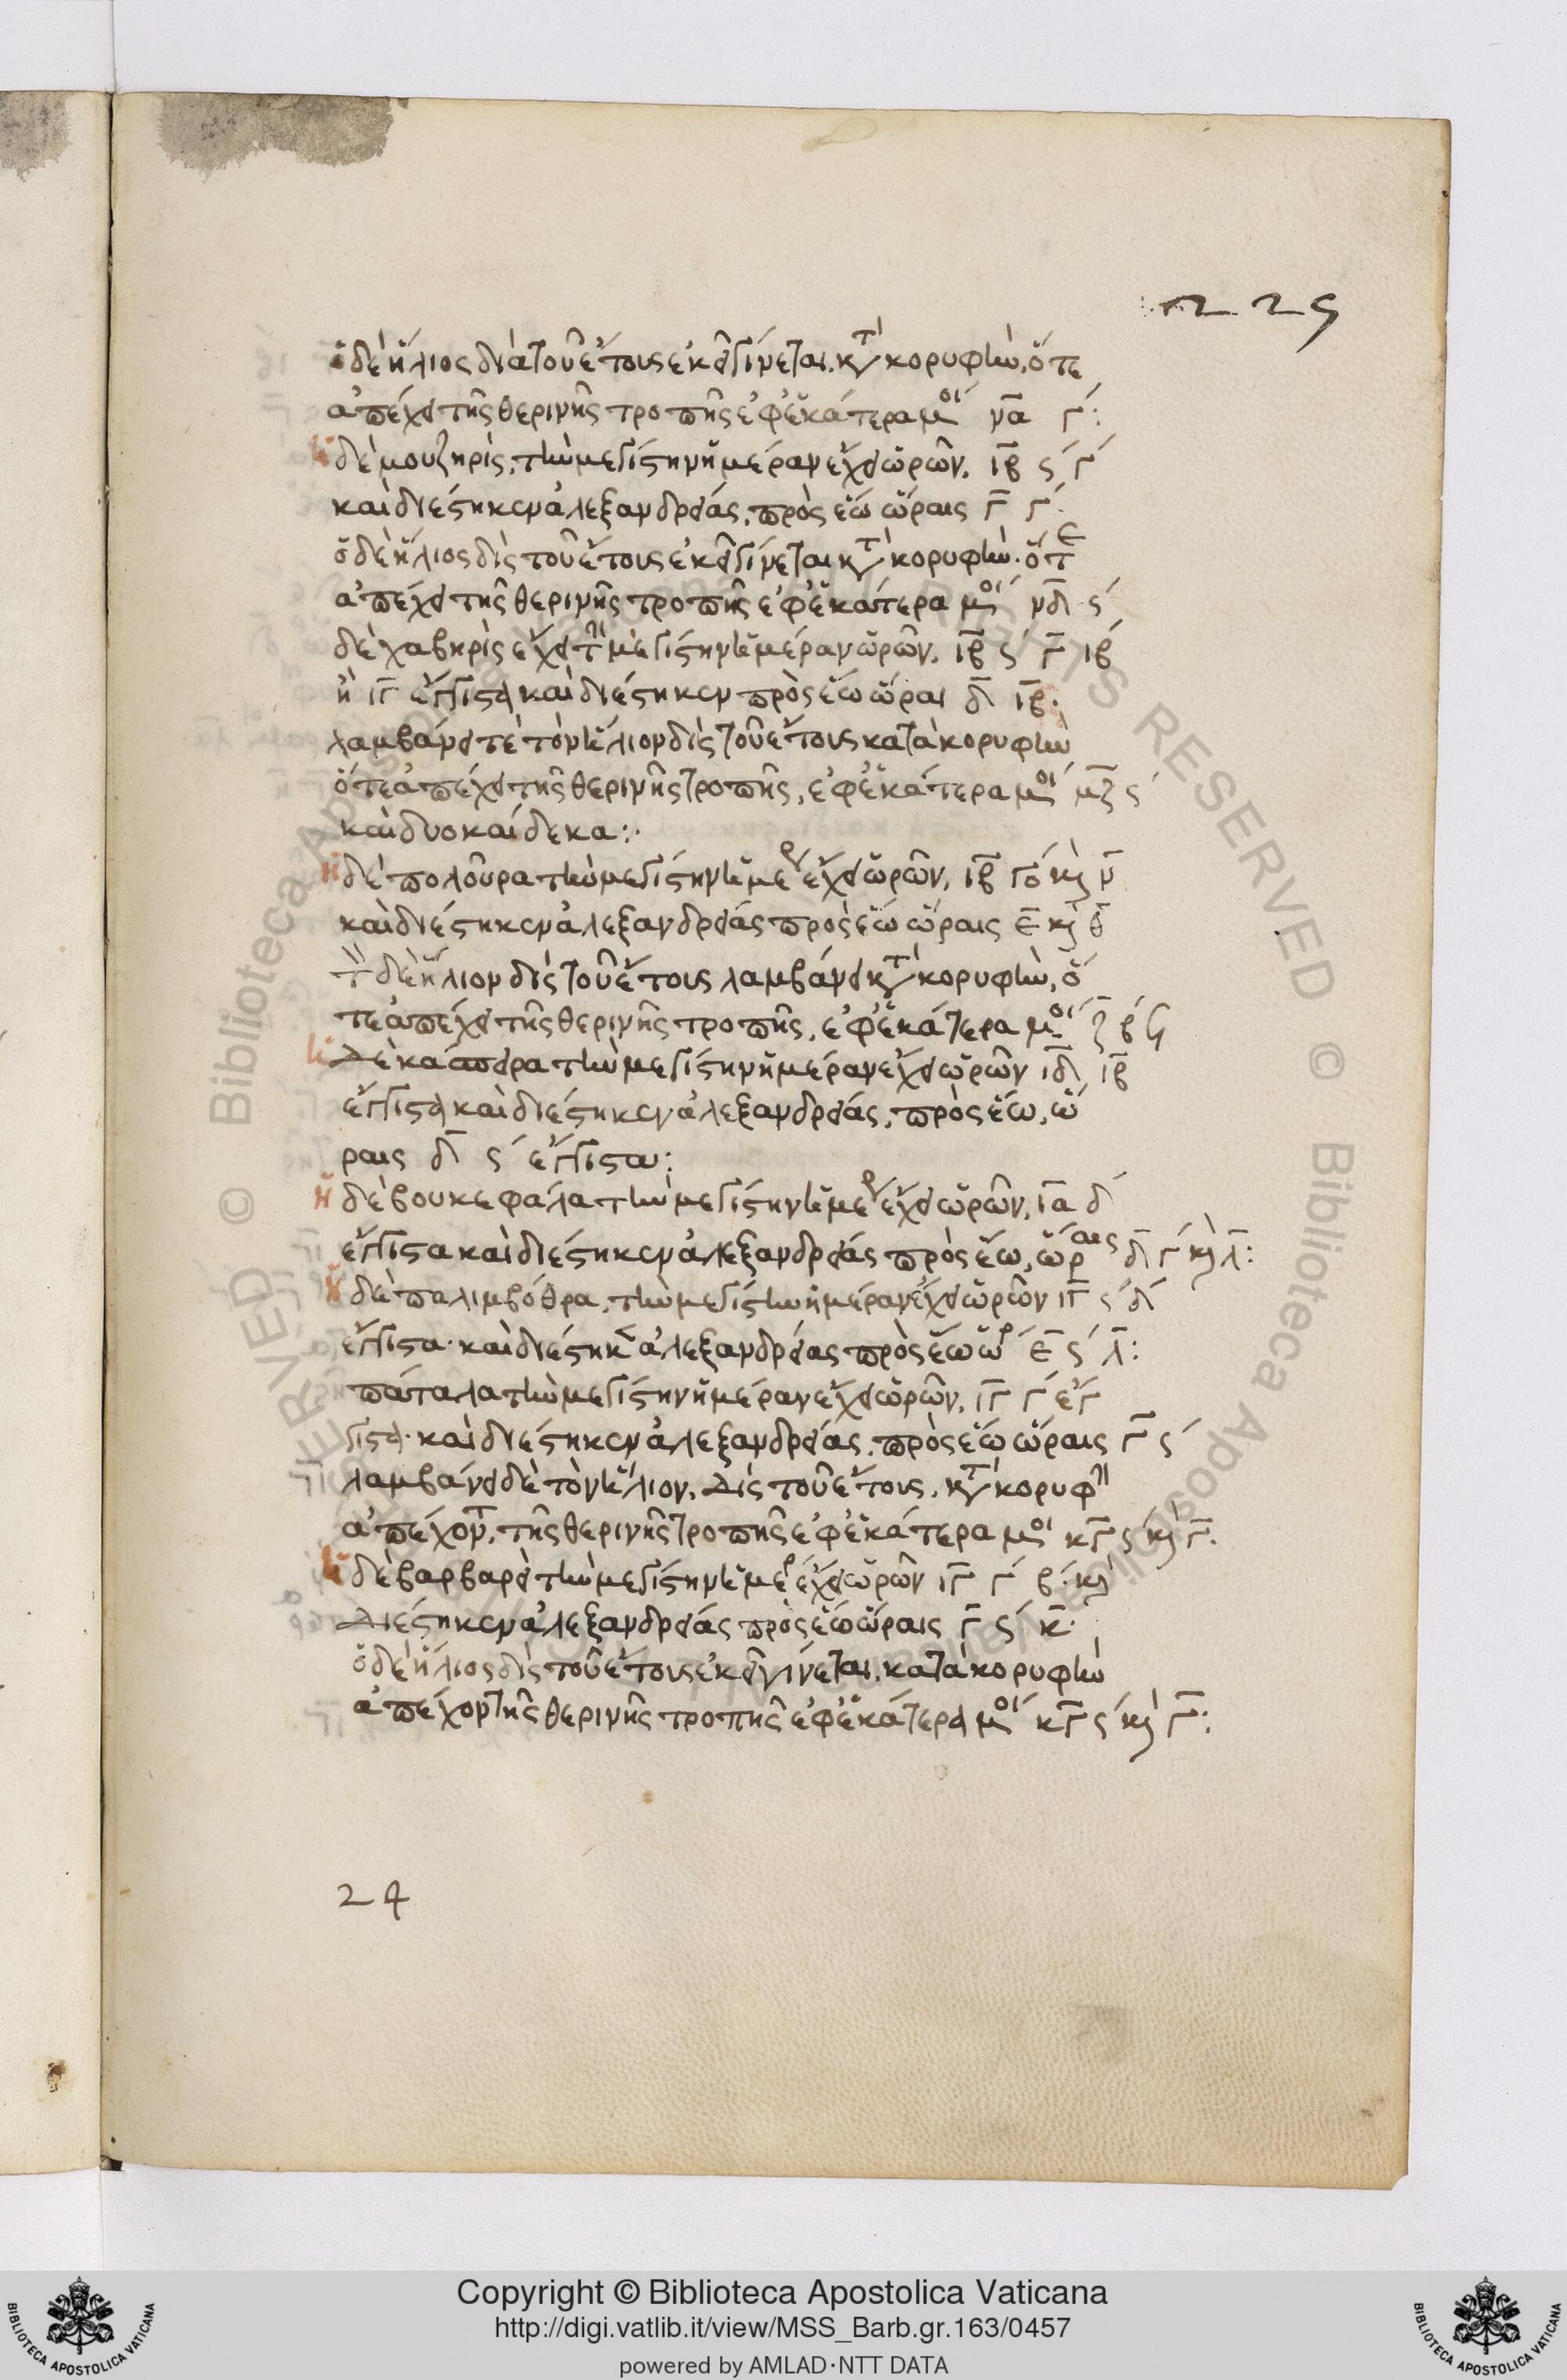 225
ὁ δὲ ἥλιος διὰ τοῦ ἔτους ἐκεῖ γίνεται κτ κορυφὴν, ὅτε
ἀπέχει τῆς θερινῆς τροπῆς ἐφ' ἑκάτερα μοί να γ´:
ἡ δὲ μουζηρὶς, τὴν μεγίστην ἡμέραν ἔχει ὡρῶν, ιβ ς´ γ´
καὶ διέστηκεν ἀλεξανδρείας, πρὸς ἕω ὥραις γ γ´.
ὁ δὲ ἥλιος δὶς τοῦ ἔτους ἐκεῖ γίνεται κτ κορυφὴν. ὅτε
ἀπέχει τῆς θερινῆς τροπῆς ἐφ' ἑκάτερα μοί νδ ς´
δὲ χαβηρὶς ἔχει τὴν μεγίστην ἡμέραν ὡρῶν, ιβ ς´ γ ιβ´
ἢ ιγ ἔγγιστα καὶ διέστηκεν πρὸς ἕω ὥραι δ ιβ.
λαμβάνει τὲ τὸν ἥλιον δὶς τοῦ ἔτους κατὰ κορυφὴν
ὅτε ἀπέχει τῆς θερινῆς τροπῆς, ἐφ' ἑκάτερα μοί μζ ς´
καὶ δυοκαίδεκα:·
ἡ δὲ πολοῦρα τὴν μεγίστην ἡμερ ἔχει ὡρῶν, ιβ γο´ κὶ ν
καὶ διέστηκεν ἀλεξανδρείας πρὸς ἕω ὥραις ε κὶ θ
τὸν δὲ ἥλιον δὶς τοῦ ἔτους λαμβάνει κτ κορυφὴν, ὅ
τε ἀπέχει τῆς θερινῆς τροπῆς, ἐφ' ἑκάτερα μοί ζ β´
ἡ δὲ κάσπειρα τὴν μεγίστην ἡμέραν ἔχει ὡρῶν ιδ ιβ
ἔγγιστα καὶ διέστηκεν ἀλεξανδρείας, πρὸς ἕω, ὥ
ραις δ ς´ ἔγγιστα:
ἡ δὲ βουκεφάλα τὴν μεγίστην ἡμερ ἔχει ὡρῶν, ια δ´
ἔγγιστα καὶ διέστηκεν ἀλεξανδρείας πρὸς ἕω, ὥραις δ γ´ κὶ λ:
ἡ δὲ παλιμβόθρα, τὴν μεγίστην ἡμέραν ἔχει ὡρῶν ιγ ς´ δ´
ἔγγιστα· καὶ διέστηκ ἀλεξανδρείας πρὸς ἕω ὥρ ε ς´ λ:
πάταλα τὴν μεγίστην ἡμέραν ἔχει ὡρῶν, ιγ γ´ ἔγ
γιστα· καὶ διέστηκεν ἀλεξανδρείας, πρὸς ἕω ὥραις γ ς´
λαμβάνει δὲ τὸν ἥλιον, δὶς τοῦ ἔτους, κτ κορυφὴν
ἀπέχοντ, τῆς θερινῆς τροπῆς ἐφ' ἑκάτερα μοί κγ ς´ κὶ γ:
ἡ δὲ βαρβαρεὶ τὴν μεγίστην ἡμερ ἔχει ὡρῶν ιγ γ´ β· κὶ
διέστηκεν ἀλεξανδρείας πρὸς ἕω ὥραις γ ς´ κ·
ὁ δὲ ἥλιος δὶς τοῦ ἔτους ἐκεῖ γίνεται, κατὰ κορυφὴν
ἀπέχον τῆς θερινῆς τροπῆς ἐφ' ἑκάτερα μοί κγ ς´ κὶ γ:
24
© Biblioteca Apostolica Vaticana ALL RIGHTS RESERVED © Biblioteca Apostolica
Copyright © Biblioteca Apostolica Vaticana
http://digi.vatlib.it/view/MSS_Barb.gr.163/0457
powered by AMLAD·NTT DATA
BIBLIOTECA APOSTOLICA VATICANA
BIBLIOTECA APOSTOLICA VATICANA